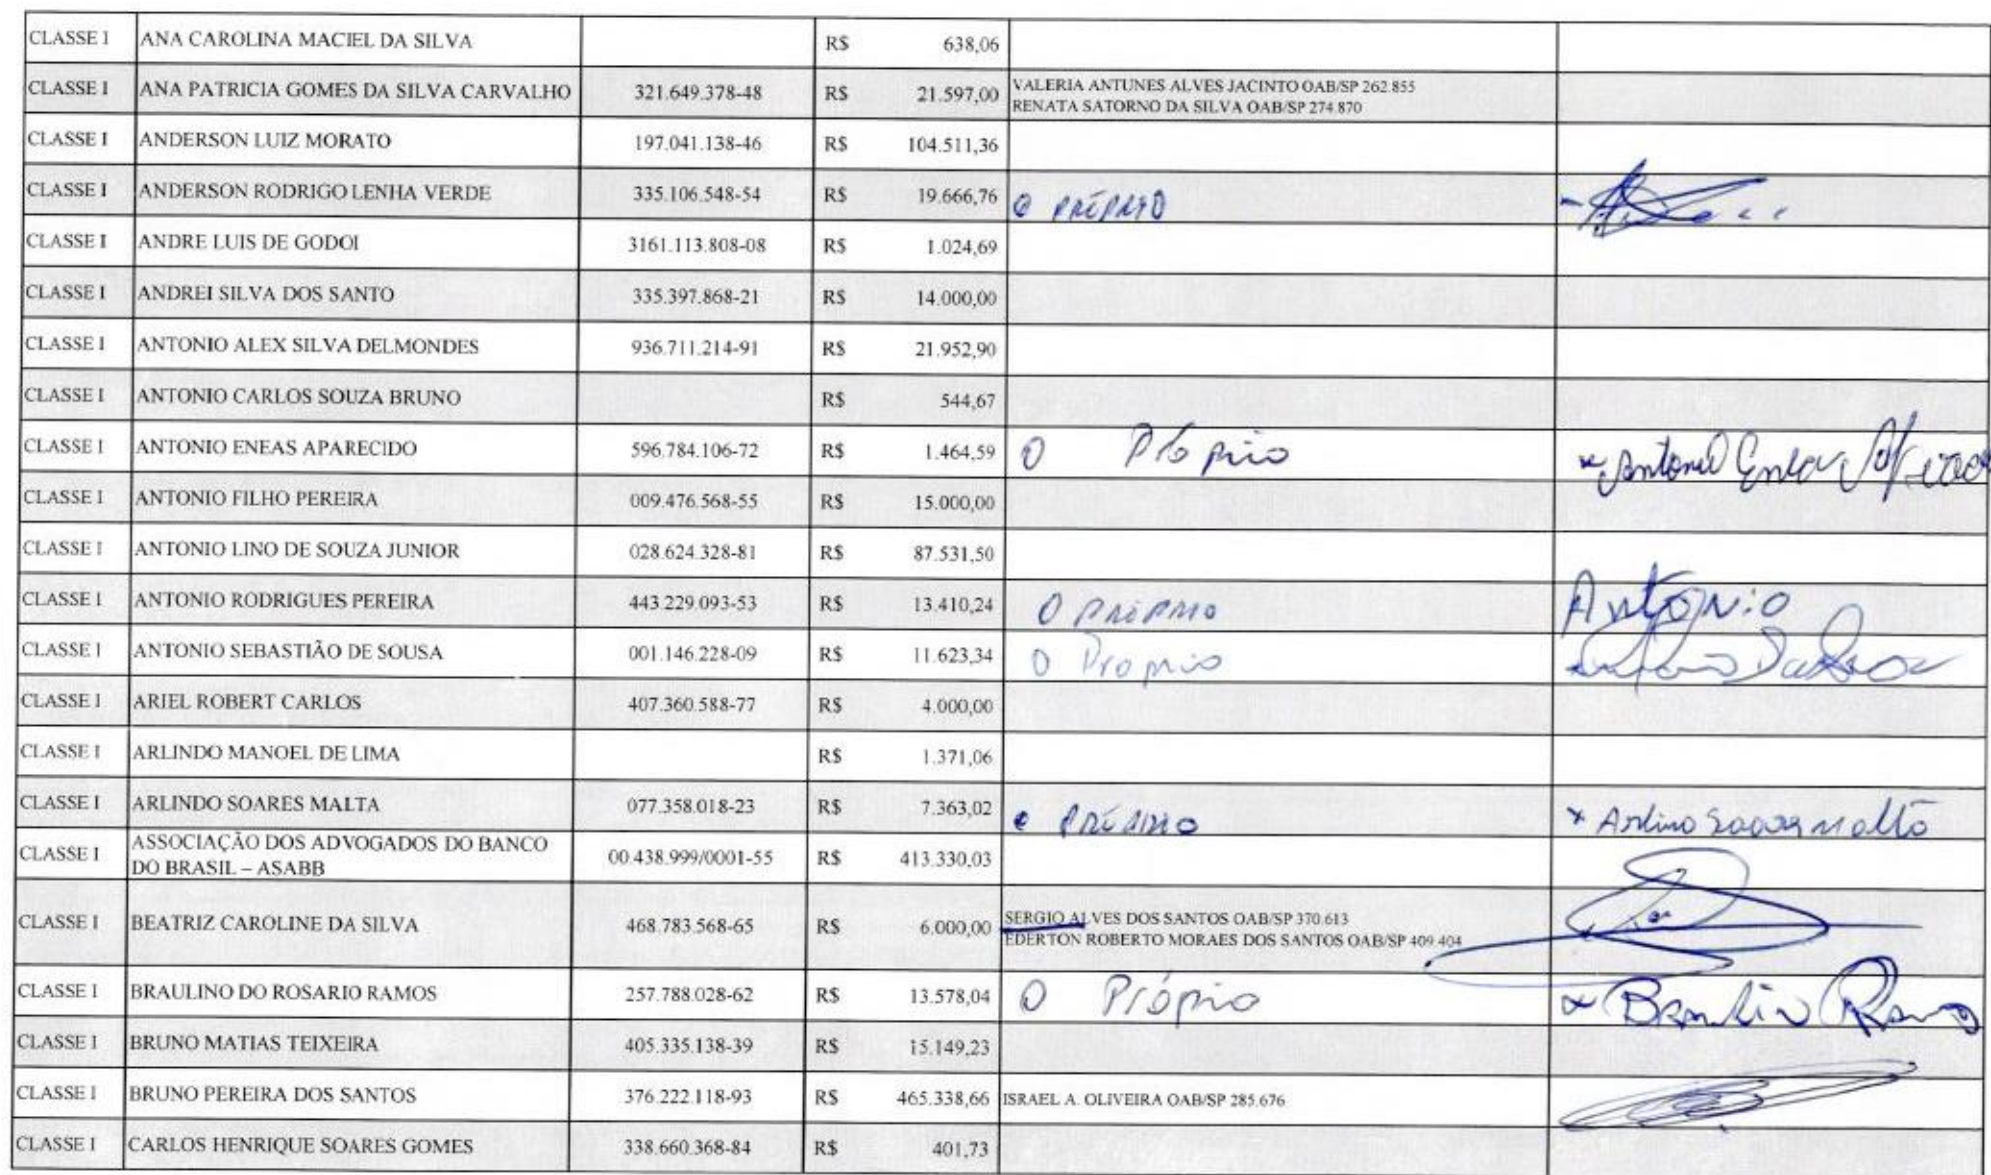 CLASSE I ANA CAROLINA MACIEL DA SILVA R$ 638,06
CLASSE I ANA PATRICIA GOMES DA SILVA CARVALHO 321.649.378-48 R$ 21.597,00 VALERIA ANTUNES ALVES JACINTO OAB/SP 262.855
RENATA SATORNO DA SILVA OAB/SP 274.870
CLASSE I ANDERSON LUIZ MORATO 197.041.138-46 R$ 104.511,36
CLASSE I ANDERSON RODRIGO LENHA VERDE 335.106.548-54 R$ 19.666,76 O PRÓPRIO
CLASSE I ANDRE LUIS DE GODOI 3161.113.808-08 R$ 1.024,69
CLASSE I ANDREI SILVA DOS SANTO 335.397.868-21 R$ 14.000,00
CLASSE I ANTONIO ALEX SILVA DELMONDES 936.711.214-91 R$ 21.952,90
CLASSE I ANTONIO CARLOS SOUZA BRUNO R$ 544,67
CLASSE I ANTONIO ENEAS APARECIDO 596.784.106-72 R$ 1.464,59 O Próprio Antonio Eneas
CLASSE I ANTONIO FILHO PEREIRA 009.476.568-55 R$ 15.000,00
CLASSE I ANTONIO LINO DE SOUZA JUNIOR 028.624.328-81 R$ 87.531,50
CLASSE I ANTONIO RODRIGUES PEREIRA 443.229.093-53 R$ 13.410,24 O PRÓPRIO ANTONIO
CLASSE I ANTONIO SEBASTIÃO DE SOUSA 001.146.228-09 R$ 11.623,34 O Proprio
CLASSE I ARIEL ROBERT CARLOS 407.360.588-77 R$ 4.000,00
CLASSE I ARLINDO MANOEL DE LIMA R$ 1.371,06
CLASSE I ARLINDO SOARES MALTA 077.358.018-23 R$ 7.363,02 O PRÓPRIO
CLASSE I ASSOCIAÇÃO DOS ADVOGADOS DO BANCO
DO BRASIL – ASABB 00.438.999/0001-55 R$ 413.330,03
CLASSE I BEATRIZ CAROLINE DA SILVA 468.783.568-65 R$ 6.000,00 SERGIO ALVES DOS SANTOS OAB/SP 370.613
EDERTON ROBERTO MORAES DOS SANTOS OAB/SP 409.404
CLASSE I BRAULINO DO ROSARIO RAMOS 257.788.028-62 R$ 13.578,04 O Próprio
CLASSE I BRUNO MATIAS TEIXEIRA 405.335.138-39 R$ 15.149,23
CLASSE I BRUNO PEREIRA DOS SANTOS 376.222.118-93 R$ 465.338,66 ISRAEL A. OLIVEIRA OAB/SP 285.676
CLASSE I CARLOS HENRIQUE SOARES GOMES 338.660.368-84 R$ 401,73